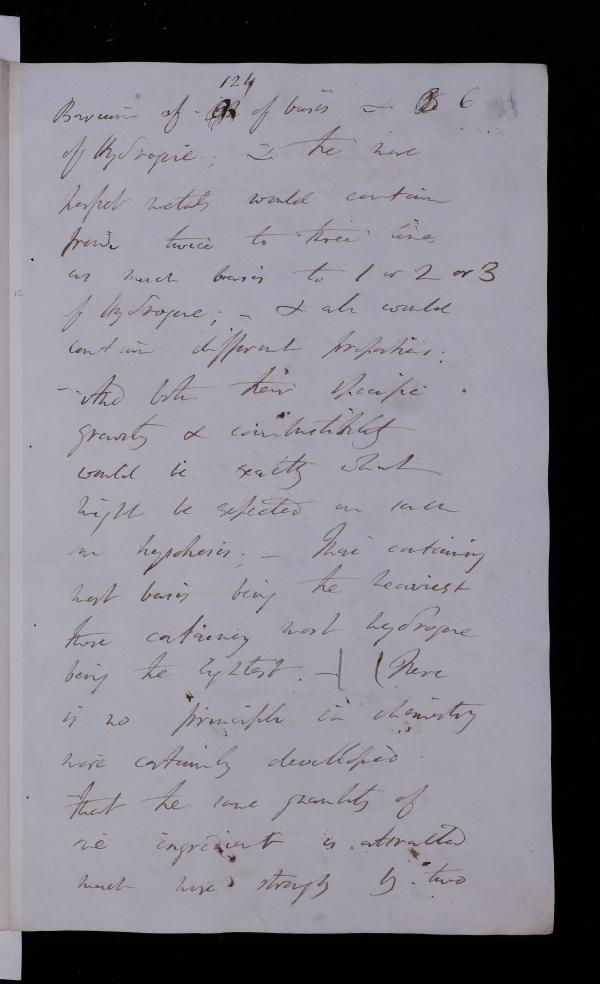 124
Barium of of basis & 6
of Hydrogene; & the more
perfect metals would contain
from twice to three times
as much basis to 1 or 2 or 3
of Hydrogene; - & all would
contain different properties.
- And both their specific
gravity & combustibility
would be exactly what
might be expected on such
an hypothesis; - Those containing
most basis being the heaviest
those containing most hydrogene
being the lightest. - | (There
is no principle in chemistry
more certainly developed
that the same quantity of
one ingredient is attracted
much more strongly by two